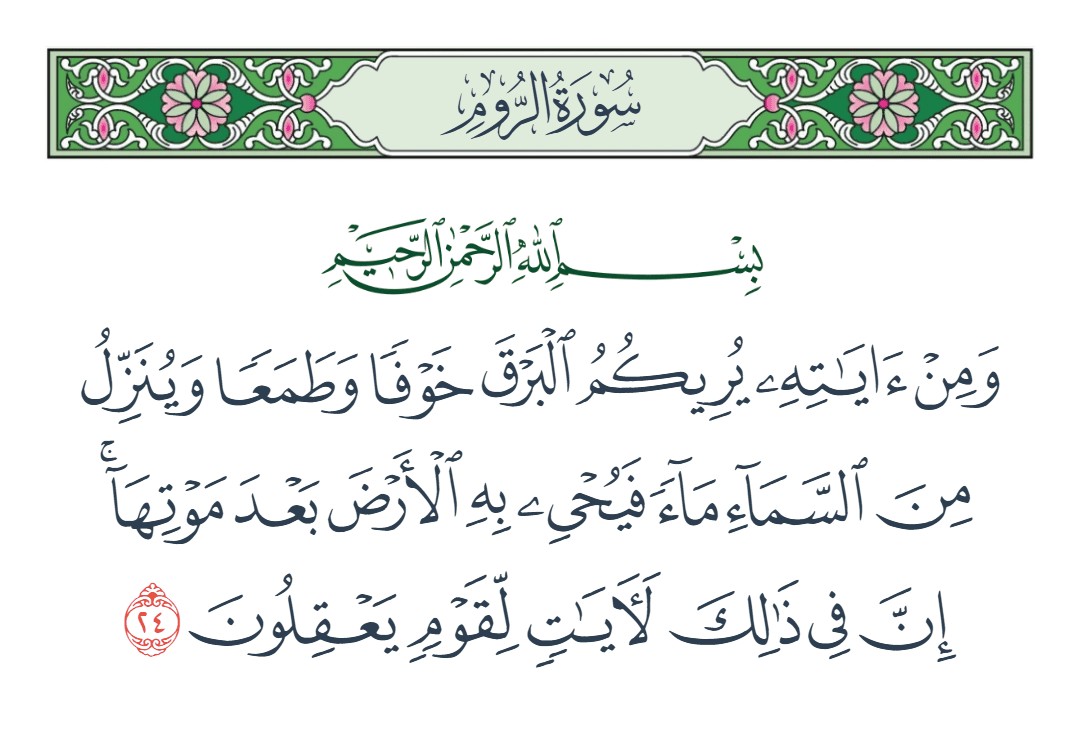 سُورَةُ الرُّومِ
بِسْمِ ٱللَّهِ ٱلرَّحْمَٰنِ ٱلرَّحِيمِ
وَمِنْ ءَايَٰتِهِۦ يُرِيكُمُ ٱلْبَرْقَ خَوْفًا وَطَمَعًا وَيُنَزِّلُ
مِنَ ٱلسَّمَآءِ مَآءً فَيُحْىِۦ بِهِ ٱلْأَرْضَ بَعْدَ مَوْتِهَآ ۚ
إِنَّ فِى ذَٰلِكَ لَءَايَٰتٍ لِّقَوْمٍ يَعْقِلُونَ ٢٤